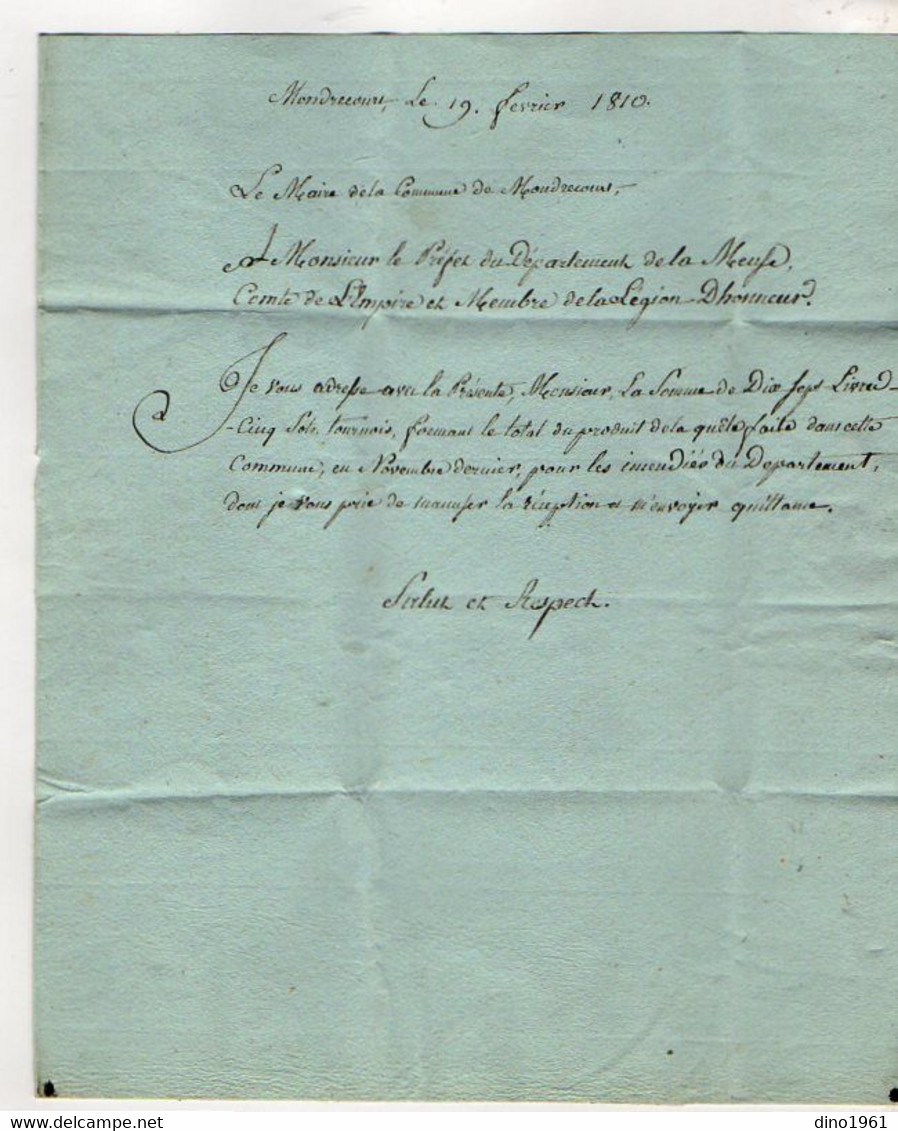 Mondrecourt, Le 19. fevrier 1810.
Le Maire dela Commune de Mondrecourt,
A Monsieur le Préfet du Département de la Meuse,
Comte de L'Empire et Membre de la Légion Dhonneur.
Je vous adresse avec la Présente, Monsieur, La Somme de Dix Sept Livres
Cinq Sols tournois, formant le total du produit dela quête faite dans cette
Commune, en Novembre dernier, pour les incendiés du Departement,
dont je vous prie de m'accuser la réception et m'envoyer quittance.
Salut et Respect.
dino1961